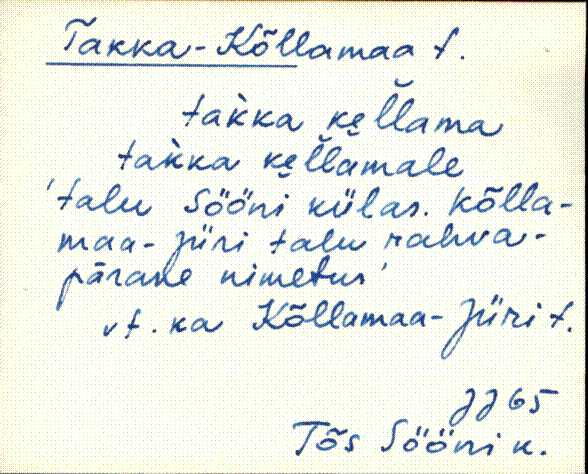 Takka-Kõllamaa t.
tak̀ka ke̮l̆lama
tak̀ka ke̮l̆lamale
'talu Sööni külas. Kõlla-
maa-Jüri talu rahva-
pärane nimetus'
vt. ka Kõllamaa-Jüri t.
JJ 65
Tõs Sööni k.